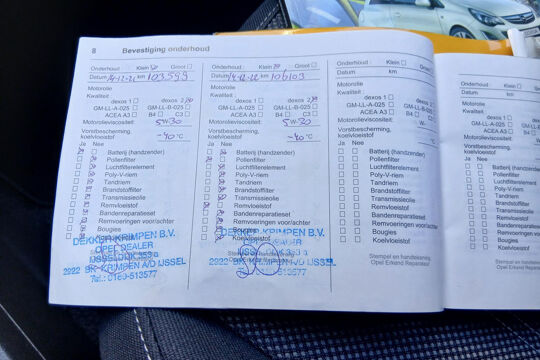 8 Bevestiging onderhoud
Onderhoud : Klein Groot
Datum 14-12-22 km 103.599
Motorolie
Kwaliteit :
dexos 1 dexos 2
GM-LL-A-025 GM-LL-B-025
ACEA A3 B4 C3
Motorolieviscositeit: 5W-30
Vorstbescherming, koelvloeistof -40 °C
Ja Nee
Batterij (handzender)
Pollenfilter
Luchtfilterelement
Poly-V-riem
Tandriem
Brandstoffilter
Transmissieolie
Remvloeistof
Bandenreparatieset
Remvoeringen voor/achter
Bougies
Koelvloeistof
DEKKER KRIMPEN B.V.
OPEL DEALER
IJSSELDIJK
KRIMPEN A/D IJSSEL
Onderhoud : Klein Groot
km 106103
Motorolie
Kwaliteit :
dexos 1 dexos 2
GM-LL-A-025 GM-LL-B-025
ACEA A3 B4 C3
Motorolieviscositeit: 5W-30
Vorstbescherming, koelvloeistof -40 °C
Ja Nee
Batterij (handzender)
Pollenfilter
Luchtfilterelement
Poly-V-riem
Tandriem
Brandstoffilter
Transmissieolie
Remvloeistof
Bandenreparatieset
Remvoeringen voor/achter
Bougies
Koelvloeistof
KRIMPEN B.V.
DEALER
KRIMPEN A/D IJSSEL
Onderhoud : Klein Groot
Datum km
Motorolie
Kwaliteit :
dexos 1 dexos 2
GM-LL-A-025 GM-LL-B-025
ACEA A3 B4 C3
Motorolieviscositeit: W-
Vorstbescherming, koelvloeistof °C
Ja Nee
Batterij (handzender)
Pollenfilter
Luchtfilterelement
Poly-V-riem
Tandriem
Brandstoffilter
Transmissieolie
Remvloeistof
Bandenreparatieset
Remvoeringen voor/achter
Bougies
Koelvloeistof
Stempel en handtekening
Opel Erkend Reparateur
Onderhoud : Klein
Datum km
Motorolie
Kwaliteit :
dexos 1
GM-LL-A-025
ACEA A3
Motorolieviscositeit:
Vorstbescherming, koelvloeistof
Ja Nee
Batterij (handzender)
Pollenfilter
Luchtfilterelement
Poly-V-riem
Tandriem
Brandstoffilter
Transmissieolie
Remvloeistof
Bandenreparatieset
Remvoeringen
Bougies
Koelvloeistof
Stempel en handtekening
Opel Erkend Reparateur